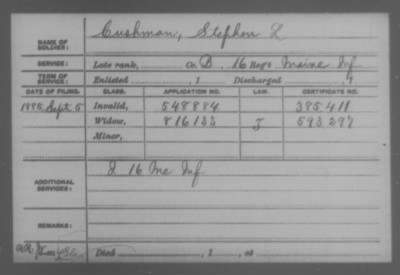 NAME OF SOLDIER: Cushman, Stephen L
SERVICE: Late rank, Co. B, 16 Reg't Maine Inf
TERM OF SERVICE: Enlisted , 1 Discharged , 1
DATE OF FILING. CLASS. APPLICATION NO. LAW. CERTIFICATE NO.
1885 Sept 5 Invalid, 548884 385411
Widow, 816132 J 593297
Minor,
ADDITIONAL SERVICES: I 16 Me Inf
REMARKS:
Died , 1 , at